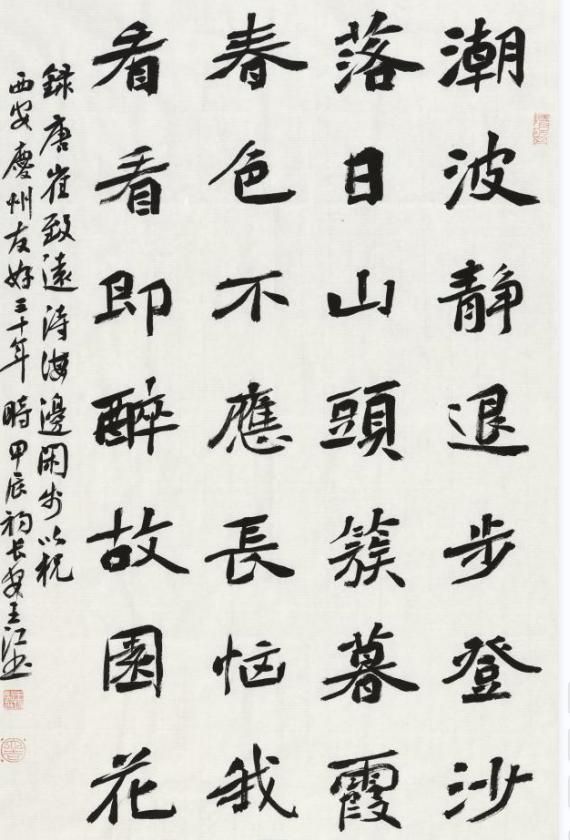 潮波靜退步登沙
落日山頭簇暮霞
春色不應長恼我
看看即醉故園花
録唐崔致遠詩海邊閑步以祝
西安慶州友好三十年時甲辰初長安王江書